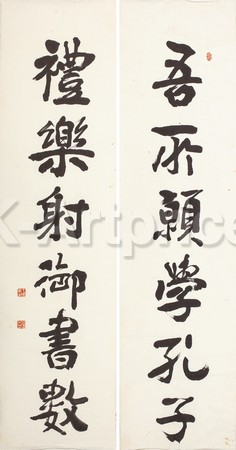 吾所願學孔子
禮樂射御書數
K-Artprice